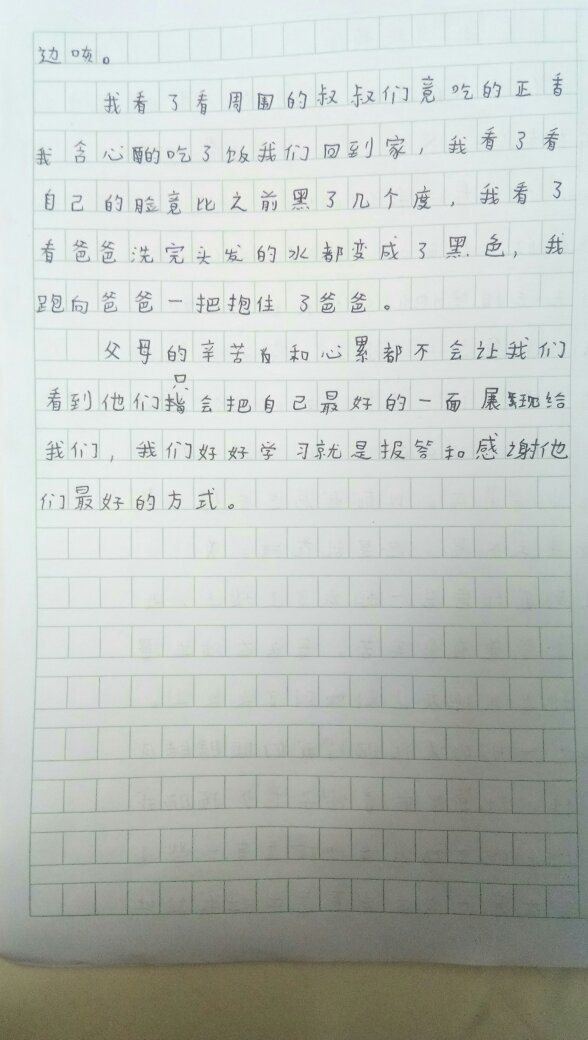 边咳。
我看了看周围的叔叔们竟吃的正香
我含心酶的吃了饭我们回到家，我看了看
自己的脸竟比之前黑了几个度，我看了
看爸爸洗完头发的水都变成了黑色，我
跑向爸爸一把抱住了爸爸。
父母的辛苦和心累都不会让我们
看到他们只会把自己最好的一面展现给
我们，我们好好学习就是报答和感谢他
们最好的方式。